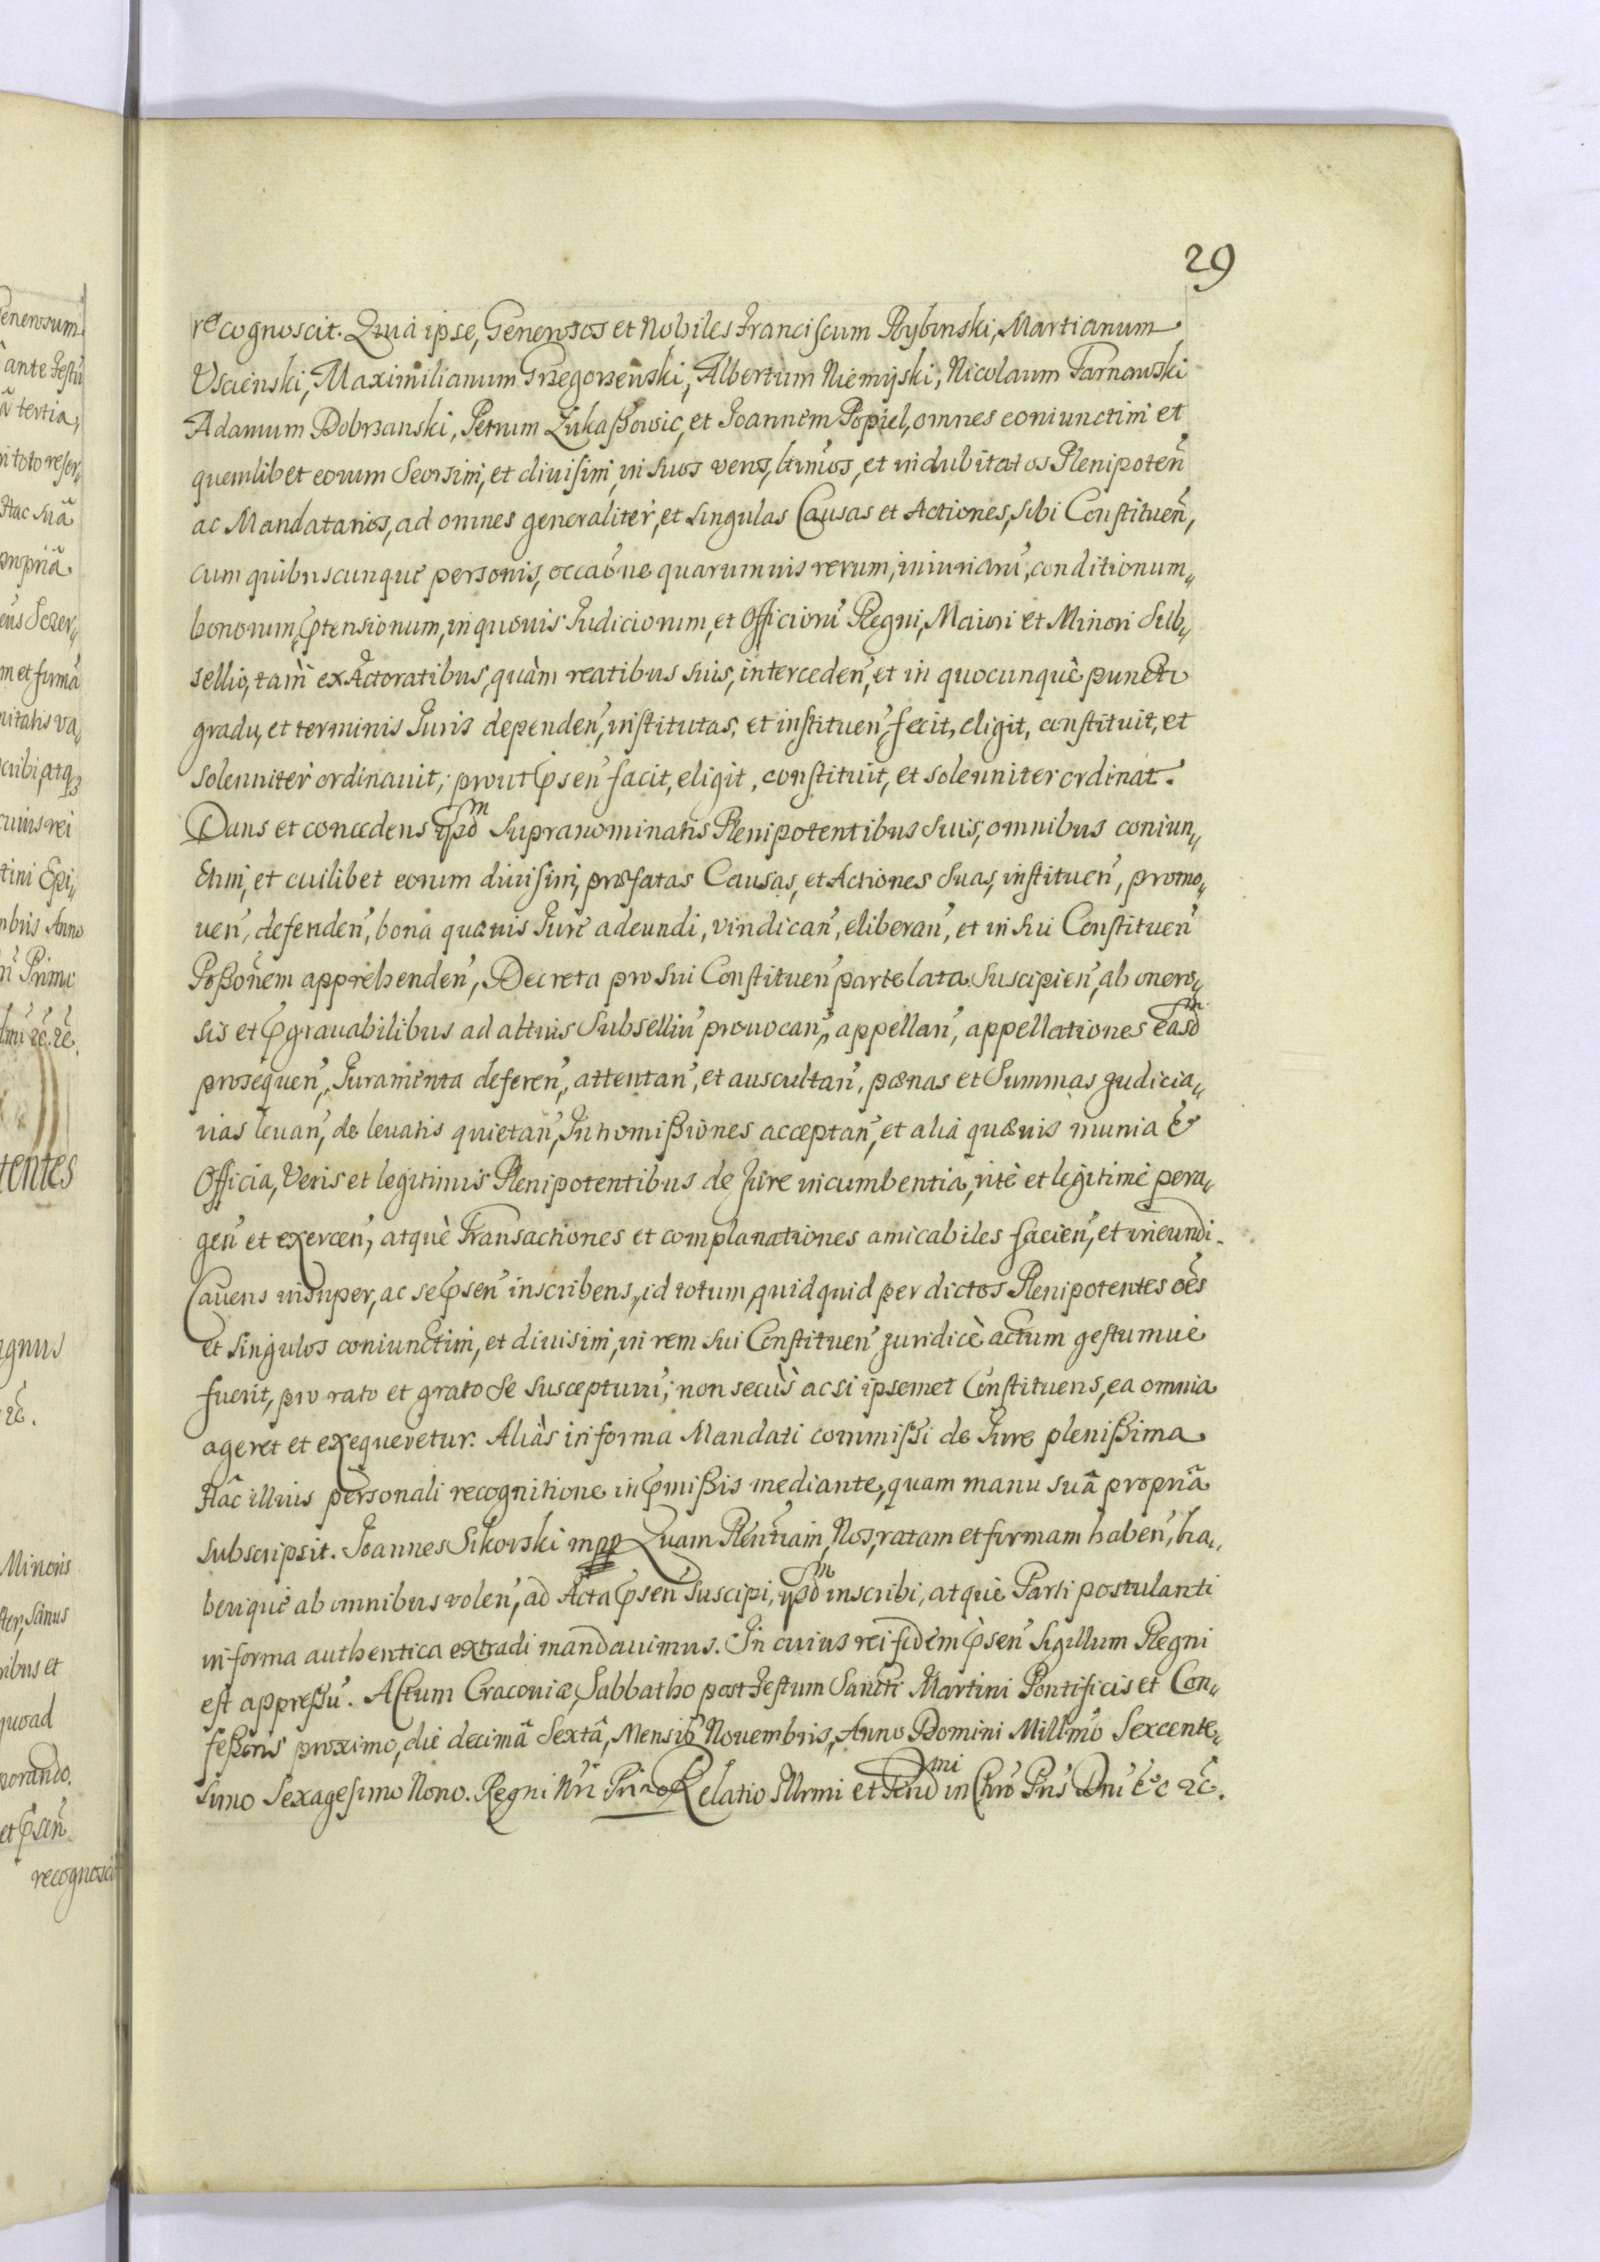 29
recognoscit. Quià ipse, Generosos et Nobiles Franciscum Rybinski, Martianum
Uscienski, Maximilianum Grzegorzewski, Albertum Niemyski, Nicolaum Tarnawski
Adamum Dobrzanski, Petrum Łukaßowic, et Joannem Popiel, omnes coniunctim et
quemlibet eorum seorsim, et diuisim, in suos veros, ltimos, et indubitatos Plenipoten̄
ac Mandatarios, ad omnes generaliter, et singulas Causas et Actiones, sibi Constituen̄,
cum quibuscunque personis, occāone quarumuis rerum, iniuriarū, conditionum„
bonorum, ꝓtensionum, in quouis Judiciorum, et Officiorū Regni, Maiori et Minori Sub„
sellio, tam ex Actoratibus, quàm reatibus suis, interceden̄, et in quocunquè puncto
gradu, et terminis Juris dependen̄, institutas, et instituen̄, fecit, eligit, constituit, et
solenniter ordinauit; prout ꝓsen̄ facit, eligit, constituit, et solenniter ordinat.
Dans et concedens ijsdm supranominatis Plenipotentibus suis, omnibus coniun„
ctim, et cuilibet eorum diuisim, præfatas Causas, et Actiones suas, instituen̄, promo„
uen̄, defenden̄, bona quæuis Jure adeundi, vindican̄, eliberan̄, et in sui Constituen̄
Poßōnem apprehenden̄, Decreta pro sui Constituen̄ parte lata suscipien̄, ab onero„
sis et ꝓgrauabilibus ad altius Subselliū prouocan̄, appellan̄, appellationes easdm
prosequen̄, Juramenta deferen̄, attentan̄, et auscultan̄, pœnas et Summas judicia„
rias leuan̄, de leuatis quietan̄, Intromißiones acceptan̄, et alià quæuis munia &
Officia, Veris et legitimis Plenipotentibus de Jure incumbentia, ritè et legitimè pera„
gen̄ et exercen̄, atquè Transactiones et complanationes amicabiles facien̄, et ineundi.
Cauens insuper, ac se ꝓsen̄ inscribens, id totum, quidquid per dictos Plenipotentes oēs
et singulos coniunctim, et diuisim, in rem sui Constituen̄ juridicè actum gestumuè
fuerit, pro rato et grato se suscepturū; non secùs ac si ipsemet Constituens, ea omnia
ageret et exequeretur. Aliàs in forma Mandati commißi de Jure plenißima
Hâc illius personali recognitione in ꝓmißis mediante, quam manu suâ propriâ
subscripsit. Joannes Sikorski mpp Quam Plen̄tiam, Nos, ratam et firmam haben̄, ha„
beriquè ab omnibus volen̄, ad Acta ꝓsen̄ suscipi, ijsdm inscribi, atquè Parti postulanti
in forma authentica extradi mandauimus. In cuius rei fidem ꝓsen̄ Sigillum Regni
est appreßū. Actum Cracouiæ, Sabbatho post Festum Sancti Martini Pontificis et Con„
feßoris proximo, die decimâ Sextâ, Mensis Nouembris, Anno Domini Millmō Sexcente„
simo Sexagesimo Nono. Regni Nri Primo Relatio Illrmi et Rendmi in Chrō Pris Dni &c ꝛc.